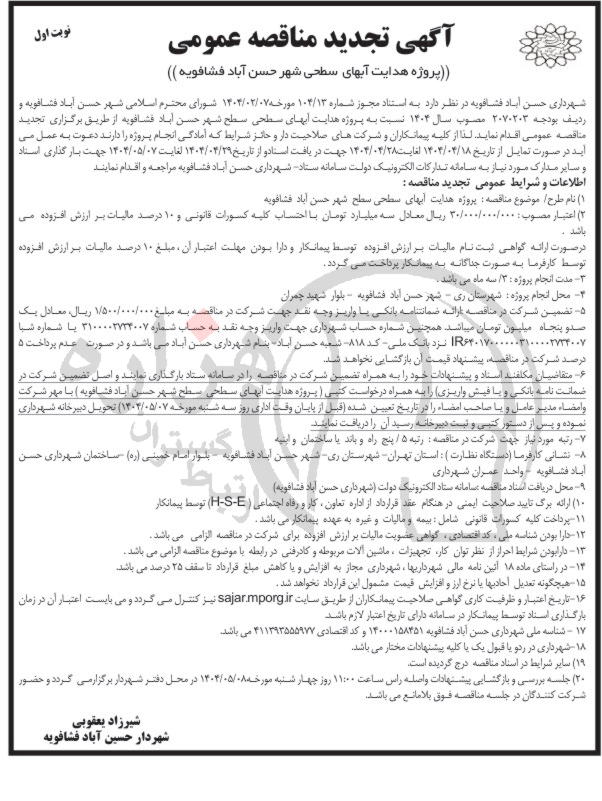 نوبت اول
آگهی تجدید مناقصه عمومی
((پروژه هدایت آبهای سطحی شهر حسن آباد فشافویه))
شهرداری حسن آباد فشافویه در نظر دارد به استناد مجوز شماره ۱۰۴/۱۳ مورخه ۱۴۰۴/۰۲/۰۷ شورای محترم اسلامی شهر حسن آباد فشافویه و
ردیف بودجه ۲۰۷۰۲۰۳ مصوب سال ۱۴۰۴ نسبت به پروژه هدایت آبهای سطحی سطح شهر حسن آباد فشافویه از طریق برگزاری تجدید
مناقصه عمومی اقدام نماید. لذا از کلیه پیمانکاران و شرکت های صلاحیت دار و حائز شرایط که آمادگی انجام پروژه را دارند دعوت به عمل می
آید در صورت تمایل از تاریخ ۱۴۰۴/۰۴/۱۸ لغایت ۱۴۰۴/۰۴/۲۸ جهت دریافت اسناد و از تاریخ ۱۴۰۴/۰۴/۲۹ لغایت ۱۴۰۴/۰۵/۰۷ جهت بارگذاری اسناد
و سایر مدارک مورد نیاز به سامانه تدارکات الکترونیک دولت سامانه ستاد- شهرداری حسن آباد فشافویه مراجعه و اقدام نمایند
اطلاعات و شرایط عمومی تجدید مناقصه :
۱) نام طرح/ موضوع مناقصه: پروژه هدایت آبهای سطحی سطح شهر حسن آباد فشافویه
۲) اعتبار مصوب : ۳۰/۰۰۰/۰۰۰/۰۰۰ ریال معادل سه میلیارد تومان با احتساب کلیه کسورات قانونی و ۱۰ درصد مالیات بر ارزش افزوده می
باشد .
درصورت ارائه گواهی ثبت نام مالیات بر ارزش افزوده توسط پیمانکار و دارا بودن مهلت اعتبار آن ، مبلغ ۱۰ درصد مالیات بر ارزش افزوده
توسط کارفرما به صورت جداگانه به پیمانکار پرداخت می گردد .
۳- مدت انجام پروژه : ۳/ سه ماه می باشد .
۴- محل انجام پروژه : شهرستان ری – شهر حسن آباد فشافویه – بلوار شهید چمران
۵- تضمین شرکت در مناقصه: ارائه ضمانتنامه بانکی یا واریز وجه نقد جهت شرکت در مناقصه به مبلغ ۱/۵۰۰/۰۰۰/۰۰۰ ریال، معادل یک
صد و پنجاه میلیون تومان میباشد. همچنین شماره حساب شهرداری جهت واریز وجه نقد به حساب شماره ۳۱۰۰۰۰۲۷۳۴۰۰۷ یا شماره شبا
IR۶۴۰۱۷۰۰۰۰۰۰۳۱۰۰۰۰۲۷۳۴۰۰۷ نزد بانک ملی- کد ۸۱۸- شعبه حسن آباد- بنام شهرداری حسن آباد می باشد و در صورت عدم پرداخت ۵
درصد شرکت در مناقصه، پیشنهاد قیمت آن بازگشایی نخواهد شد.
۶- متقاضیان مکلفند اسناد و پیشنهادات خود را به همراه تضمین شرکت در مناقصه را در سامانه ستاد بارگذاری نمایند و اصل تضمین شرکت در
ضمانت نامه بانکی و یا فیش واریزی) را به همراه درخواست کتبی (پروژه هدایت آبهای سطحی سطح شهر حسن آباد فشافویه ) با مهر شرکت
وامضاء مدیر عامل و یا صاحب امضاء را در تاریخ تعیین شده (قبل از پایان وقت اداری روز سه شنبه مورخه ۱۴۰۴/۰۵/۰۷) تحویل دبیرخانه شهرداری
نموده و پس از دستور کتبی و ثبت دبیرخانه رسید آن را دریافت نمایند.
۷- رتبه مورد نیاز جهت شرکت در مناقصه : رتبه ۵/ پنج راه و باند یا ساختمان و ابنیه
۸- نشانی کارفرما (دستگاه نظارت) : استان تهران- شهرستان ری- شهر حسن آباد فشافویه – بلوار امام خمینی (ره) –ساختمان شهرداری حسن
آباد فشافویه – واحد عمران شهرداری
۹- محل دریافت اسناد مناقصه:سامانه ستاد الکترونیک دولت (شهرداری حسن آباد فشافویه)
۱۰) ارائه برگ تایید صلاحیت ایمنی در هنگام عقد قرارداد از اداره تعاون ، کار و رفاه اجتماعی (H-S-E) توسط پیمانکار
۱۱- پرداخت کلیه کسورات قانونی شامل : بیمه و مالیات و غیره به عهده پیمانکار می باشد .
۱۲-دارا بودن شناسه ملی ، کد اقتصادی ، گواهی عضویت مالیات بر ارزش افزوده برای شرکت در مناقصه الزامی می باشد .
۱۳- دارابودن شرایط احراز از نظر توان کار، تجهیزات ، ماشین آلات مربوطه و کادرفنی در رابطه با موضوع مناقصه الزامی می باشد .
۱۴- در راستای ماده ۱۸ آئین نامه مالی شهرداریها ، شهرداری مجاز به افزایش و یا کاهش مبلغ قرارداد تا سقف ۲۵ درصد می باشد.
۱۵-هیچگونه تعدیل آحادبها یا نرخ ارز و افزایش قیمت مشمول این قرارداد نخواهد شد .
۱۶-تاریخ اعتبار و ظرفیت کاری گواهی صلاحیت پیمانکاران از طریق سایت sajar.mporg.ir نیز کنترل می گردد و می بایست اعتبار آن در زمان
بارگذاری اسناد توسط پیمانکار در سامانه دارای تاریخ اعتبار لازم باشد.
۱۷ - شناسه ملی شهرداری حسن آباد فشافویه ۱۴۰۰۰۱۵۸۴۵۱ و کد اقتصادی ۴۱۱۳۹۳۵۵۵۹۷۷ می باشد.
۱۸-شهرداری در رد و یا قبول یک یا کلیه پیشنهادات مختار می باشد.
۱۹) سایر شرایط در اسناد مناقصه درج گردیده است.
۲۰) جلسه بررسی و بازگشایی پیشنهادات واصله راس ساعت ۱۱:۰۰ روز چهار شنبه مورخه ۱۴۰۴/۰۵/۰۸ در محل دفتر شهردار برگزار می گردد و حضور
شرکت کنندگان در جلسه مناقصه فوق بلامانع می باشد.
شیرزاد یعقوبی
شهردار حسین آباد فشافویه